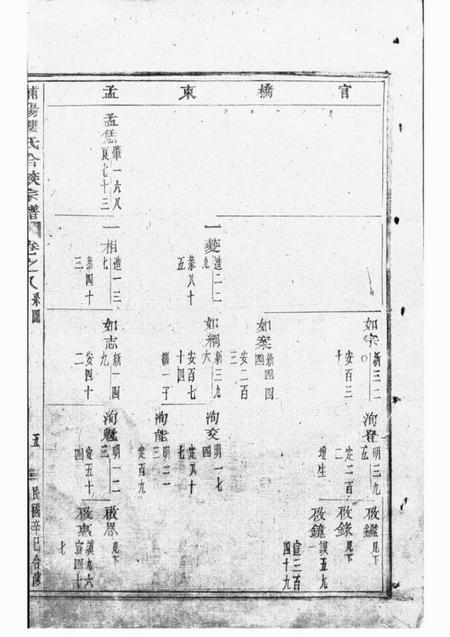 官橋東孟
如宗
新三二〇
安百三十
洵登
明三九五
定二百二
增生
啟鑑
見下
啟錄
見下
啟鐘
謨五九一
宣三百四十九
如案
新四四四
安二百三
一夔
造二二九
恭八十五
如綱
新三九六
安百七十四
繼一子
洵交
明一七四
定八十七
洵能
明二一三
定百九
孟
肇一六八
良七十三
一相
造一三七
恭四十三
如志
新一四九
安四十二
洵魁
明一二三
定五十四
啟恩
見下
啟熹
謨九六
宣四十七
氏合族宗譜
卷之八系圖
五
民國辛巳合修